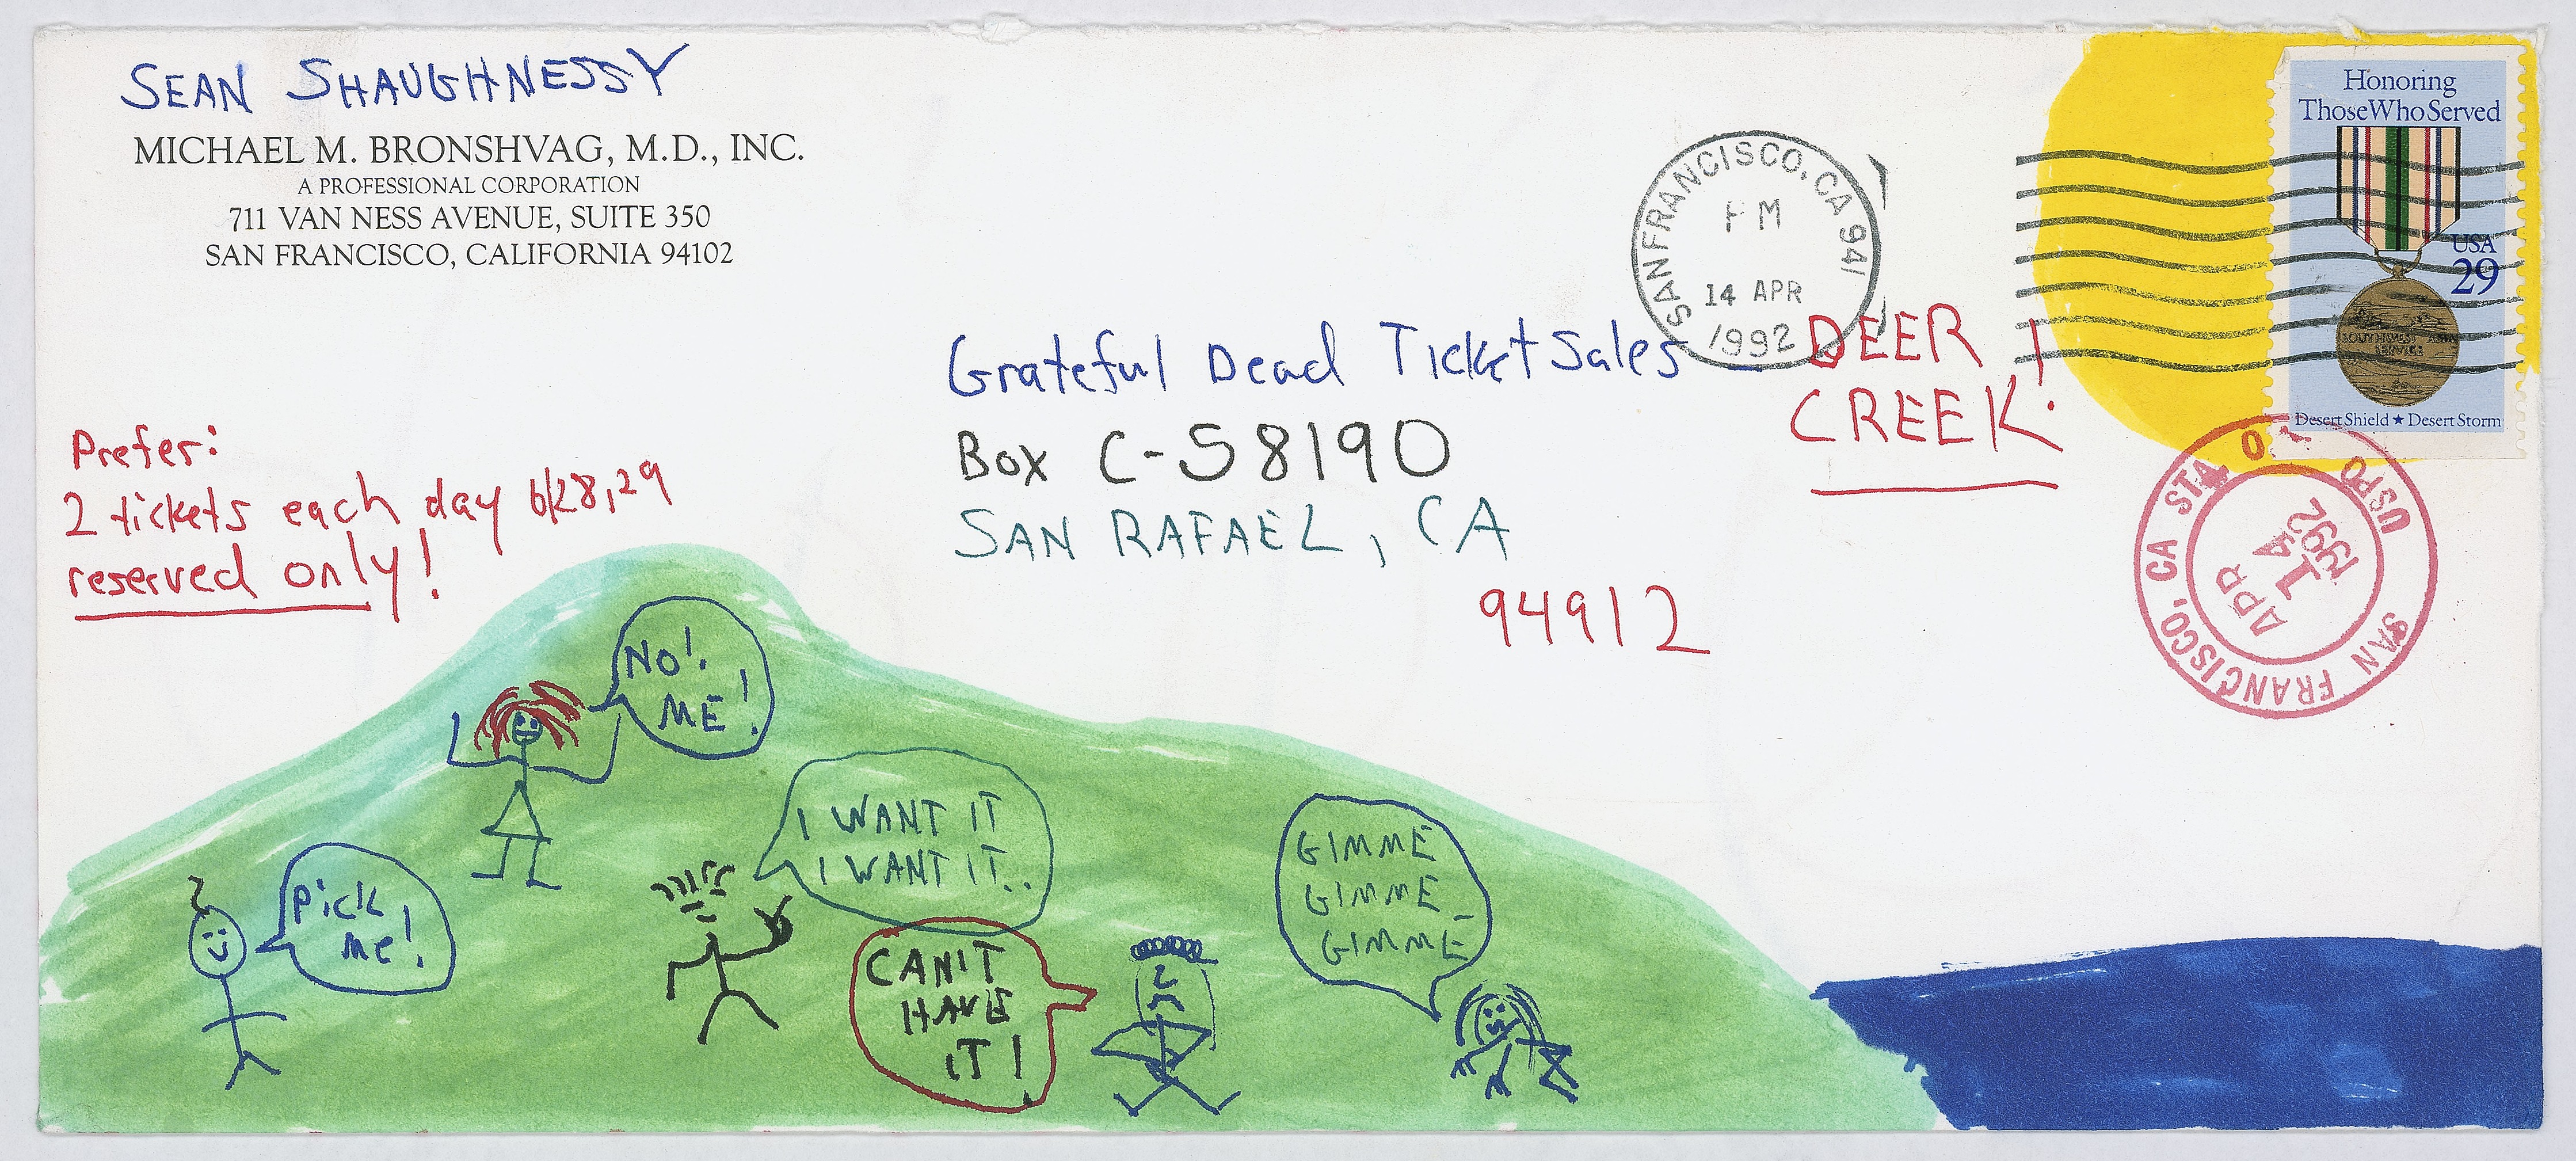 SEAN SHAUGHNESSY
MICHAEL M. BRONSHVAG, M.D., INC.
A PROFESSIONAL CORPORATION
711 VAN NESS AVENUE, SUITE 350
SAN FRANCISCO, CALIFORNIA 94102
Honoring
Those Who Served
USA
29
SOUTHWEST ASIA
SERVICE
Desert Shield ★ Desert Storm
SAN FRANCISCO, CA 941
PM
14 APR
1992
Grateful Dead Ticket Sales - DEER
CREEK!
Box C-58190
SAN RAFAEL, CA
94912
Prefer:
2 tickets each day 6/28,29
reserved only!
SAN FRANCISCO, CA STA
USPO
APR
14
1992
NO!
ME!
I WANT IT
I WANT IT..
PICK
ME!
CAN'T
HAVE
IT!
GIMME
GIMME
GIMME